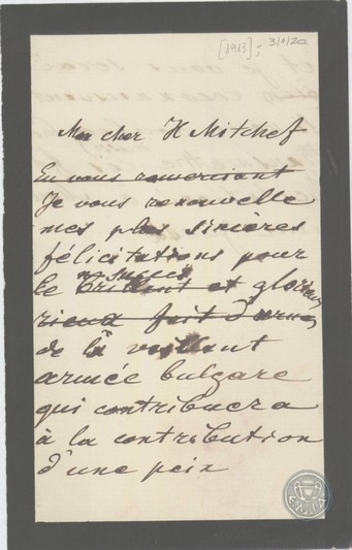 [1913]; 3/1/20
Mon cher H Mitchef
En vous remerciant
Je vous renouvelle
mes plus sincères
félicitations pour
succès
le brillant et glorieux
fait d'armes
de la vaillant
armée bulgare
qui contribuera
à la contribution
d'une paix